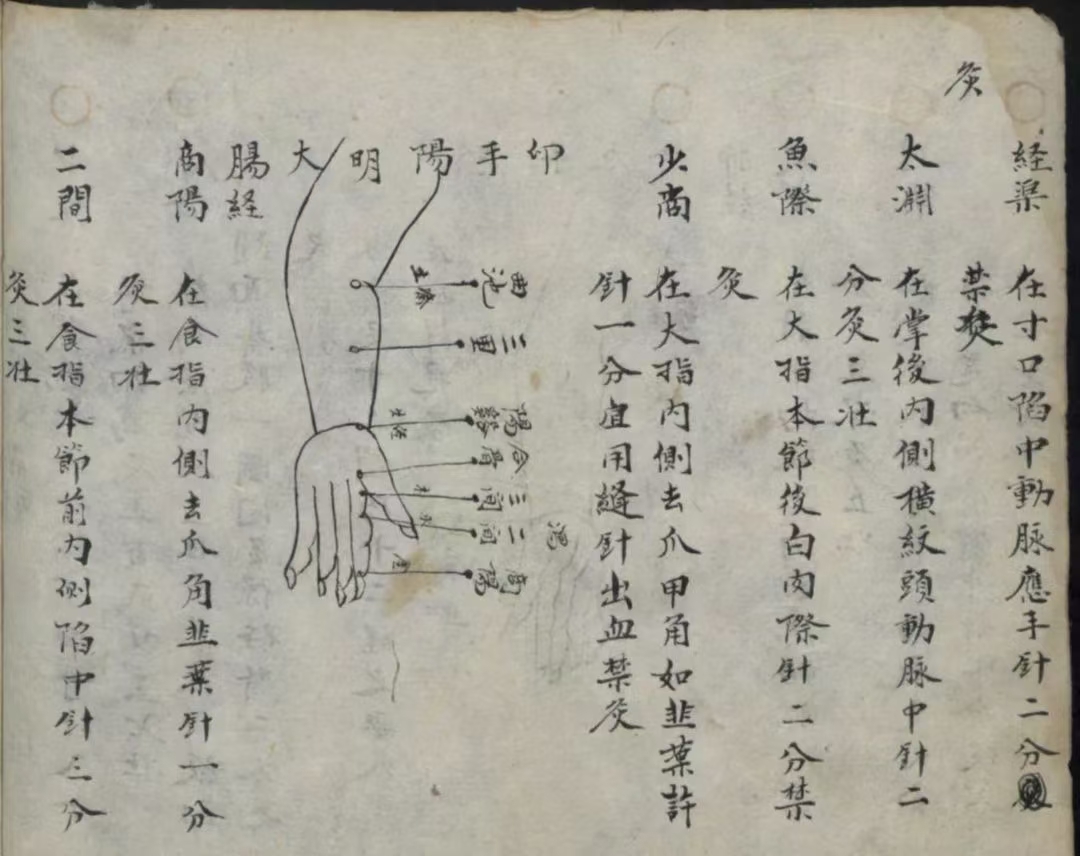 灸
経渠
在寸口陷中動脉應手針二分
禁灸
太淵
在掌後内側横紋頭動脉中針二
分灸三壮
魚際
在大指本節後白肉際針二分禁
灸
少商
在大指内側去爪甲角如韮葉許
針一分宜用縫針出血禁灸
仰手陽明大
腸経
曲池
三里
陽谿
合骨
三间
二间
商陽
商陽
在食指内側去爪角韮葉針一分
灸三壮
二間
在食指本節前内側陷中針三分
灸三壮